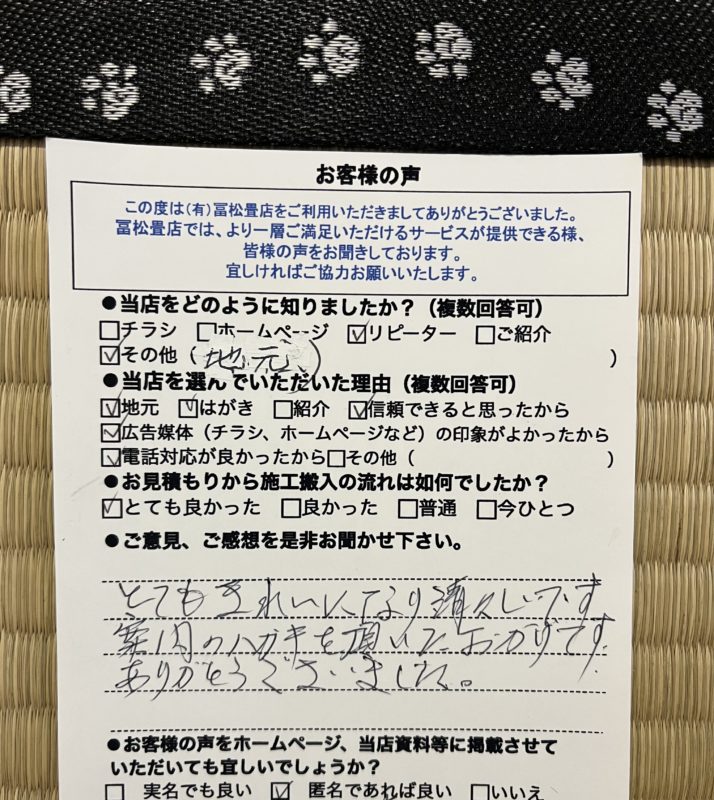 お客様の声
この度は(有)冨松畳店をご利用いただきましてありがとうございました。
冨松畳店では、より一層ご満足いただけるサービスが提供できる様、
皆様の声をお聞きしております。
宜しければご協力お願いいたします。
●当店をどのように知りましたか？（複数回答可）
□チラシ □ホームページ ☑リピーター □ご紹介
☑その他（地元）
●当店を選んでいただいた理由（複数回答可）
☑地元 ☑はがき □紹介 ☑信頼できると思ったから
☑広告媒体（チラシ、ホームページなど）の印象がよかったから
☑電話対応が良かったから□その他（ ）
●お見積もりから施工搬入の流れは如何でしたか？
☑とても良かった □良かった □普通 □今ひとつ
●ご意見、ご感想を是非お聞かせ下さい。
とてもきれいになり清々しいです
案内のハガキを頂いたおかげです.
ありがとうございました。
●お客様の声をホームページ、当店資料等に掲載させて
いただいても宜しいでしょうか？
□ 実名でも良い ☑ 匿名であれば良い □いいえ